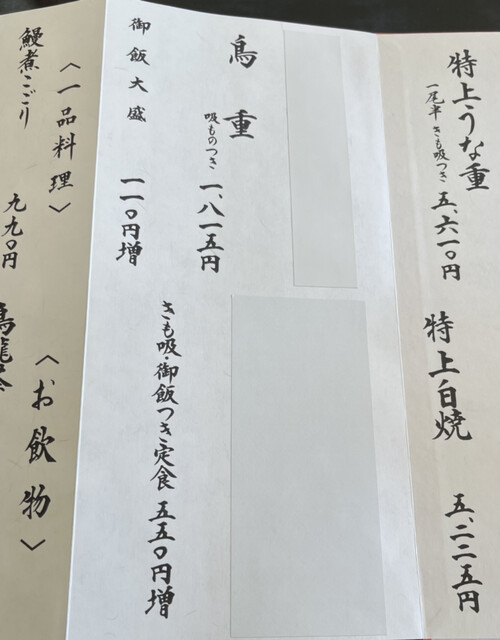 特上うな重
一尾半 きも吸つき 五、六一〇円
特上白焼
五、二二五円
鳥重
吸ものつき 一、八一五円
御飯大盛
一一〇円増
きも吸・御飯つき定食 五五〇円増
〈一品料理〉
鰻煮こごり
九九〇円
〈お飲物〉